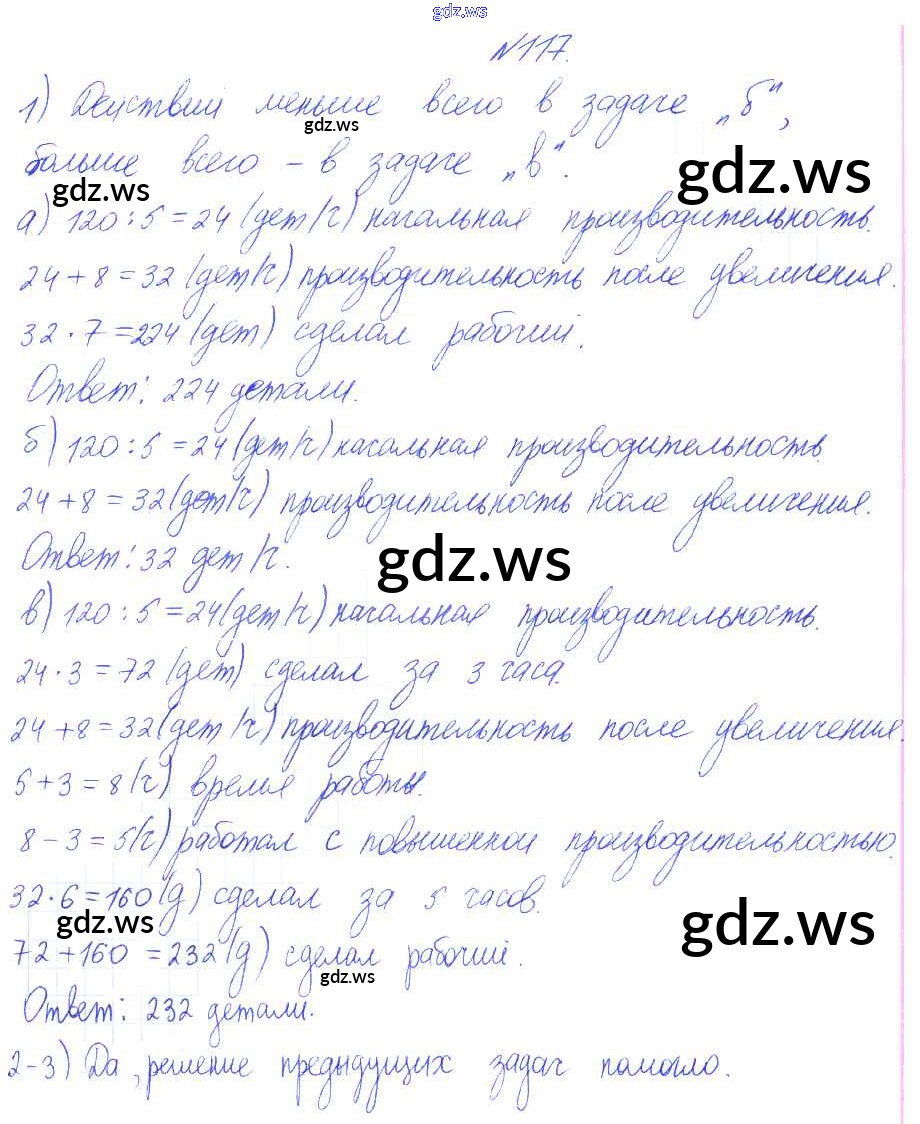 gdz.ws
№117.
1) Действий меньше всего в задаче „б“,
gdz.ws
больше всего – в задаче „в“.
gdz.ws gdz.ws
а) 120 : 5 = 24 (дет/ч) начальная производительность.
24 + 8 = 32 (дет/ч) производительность после увеличения.
32 · 7 = 224 (дет) сделал рабочий.
Ответ: 224 детали.
б) 120 : 5 = 24 (дет/ч) начальная производительность.
24 + 8 = 32 (дет/ч) производительность после увеличения.
Ответ: 32 дет/ч.
gdz.ws
в) 120 : 5 = 24 (дет/ч) начальная производительность.
24 · 3 = 72 (дет) сделал за 3 часа.
24 + 8 = 32 (дет/ч) производительность после увеличения.
5 + 3 = 8 (ч) время работы.
8 – 3 = 5 (ч) работал с повышенной производительностью.
32 · 6 = 160 (д) сделал за 5 часов.
gdz.ws gdz.ws
72 + 160 = 232 (д) сделал рабочий.
gdz.ws
Ответ: 232 детали.
2-3) Да, решение предыдущих задач помогло.